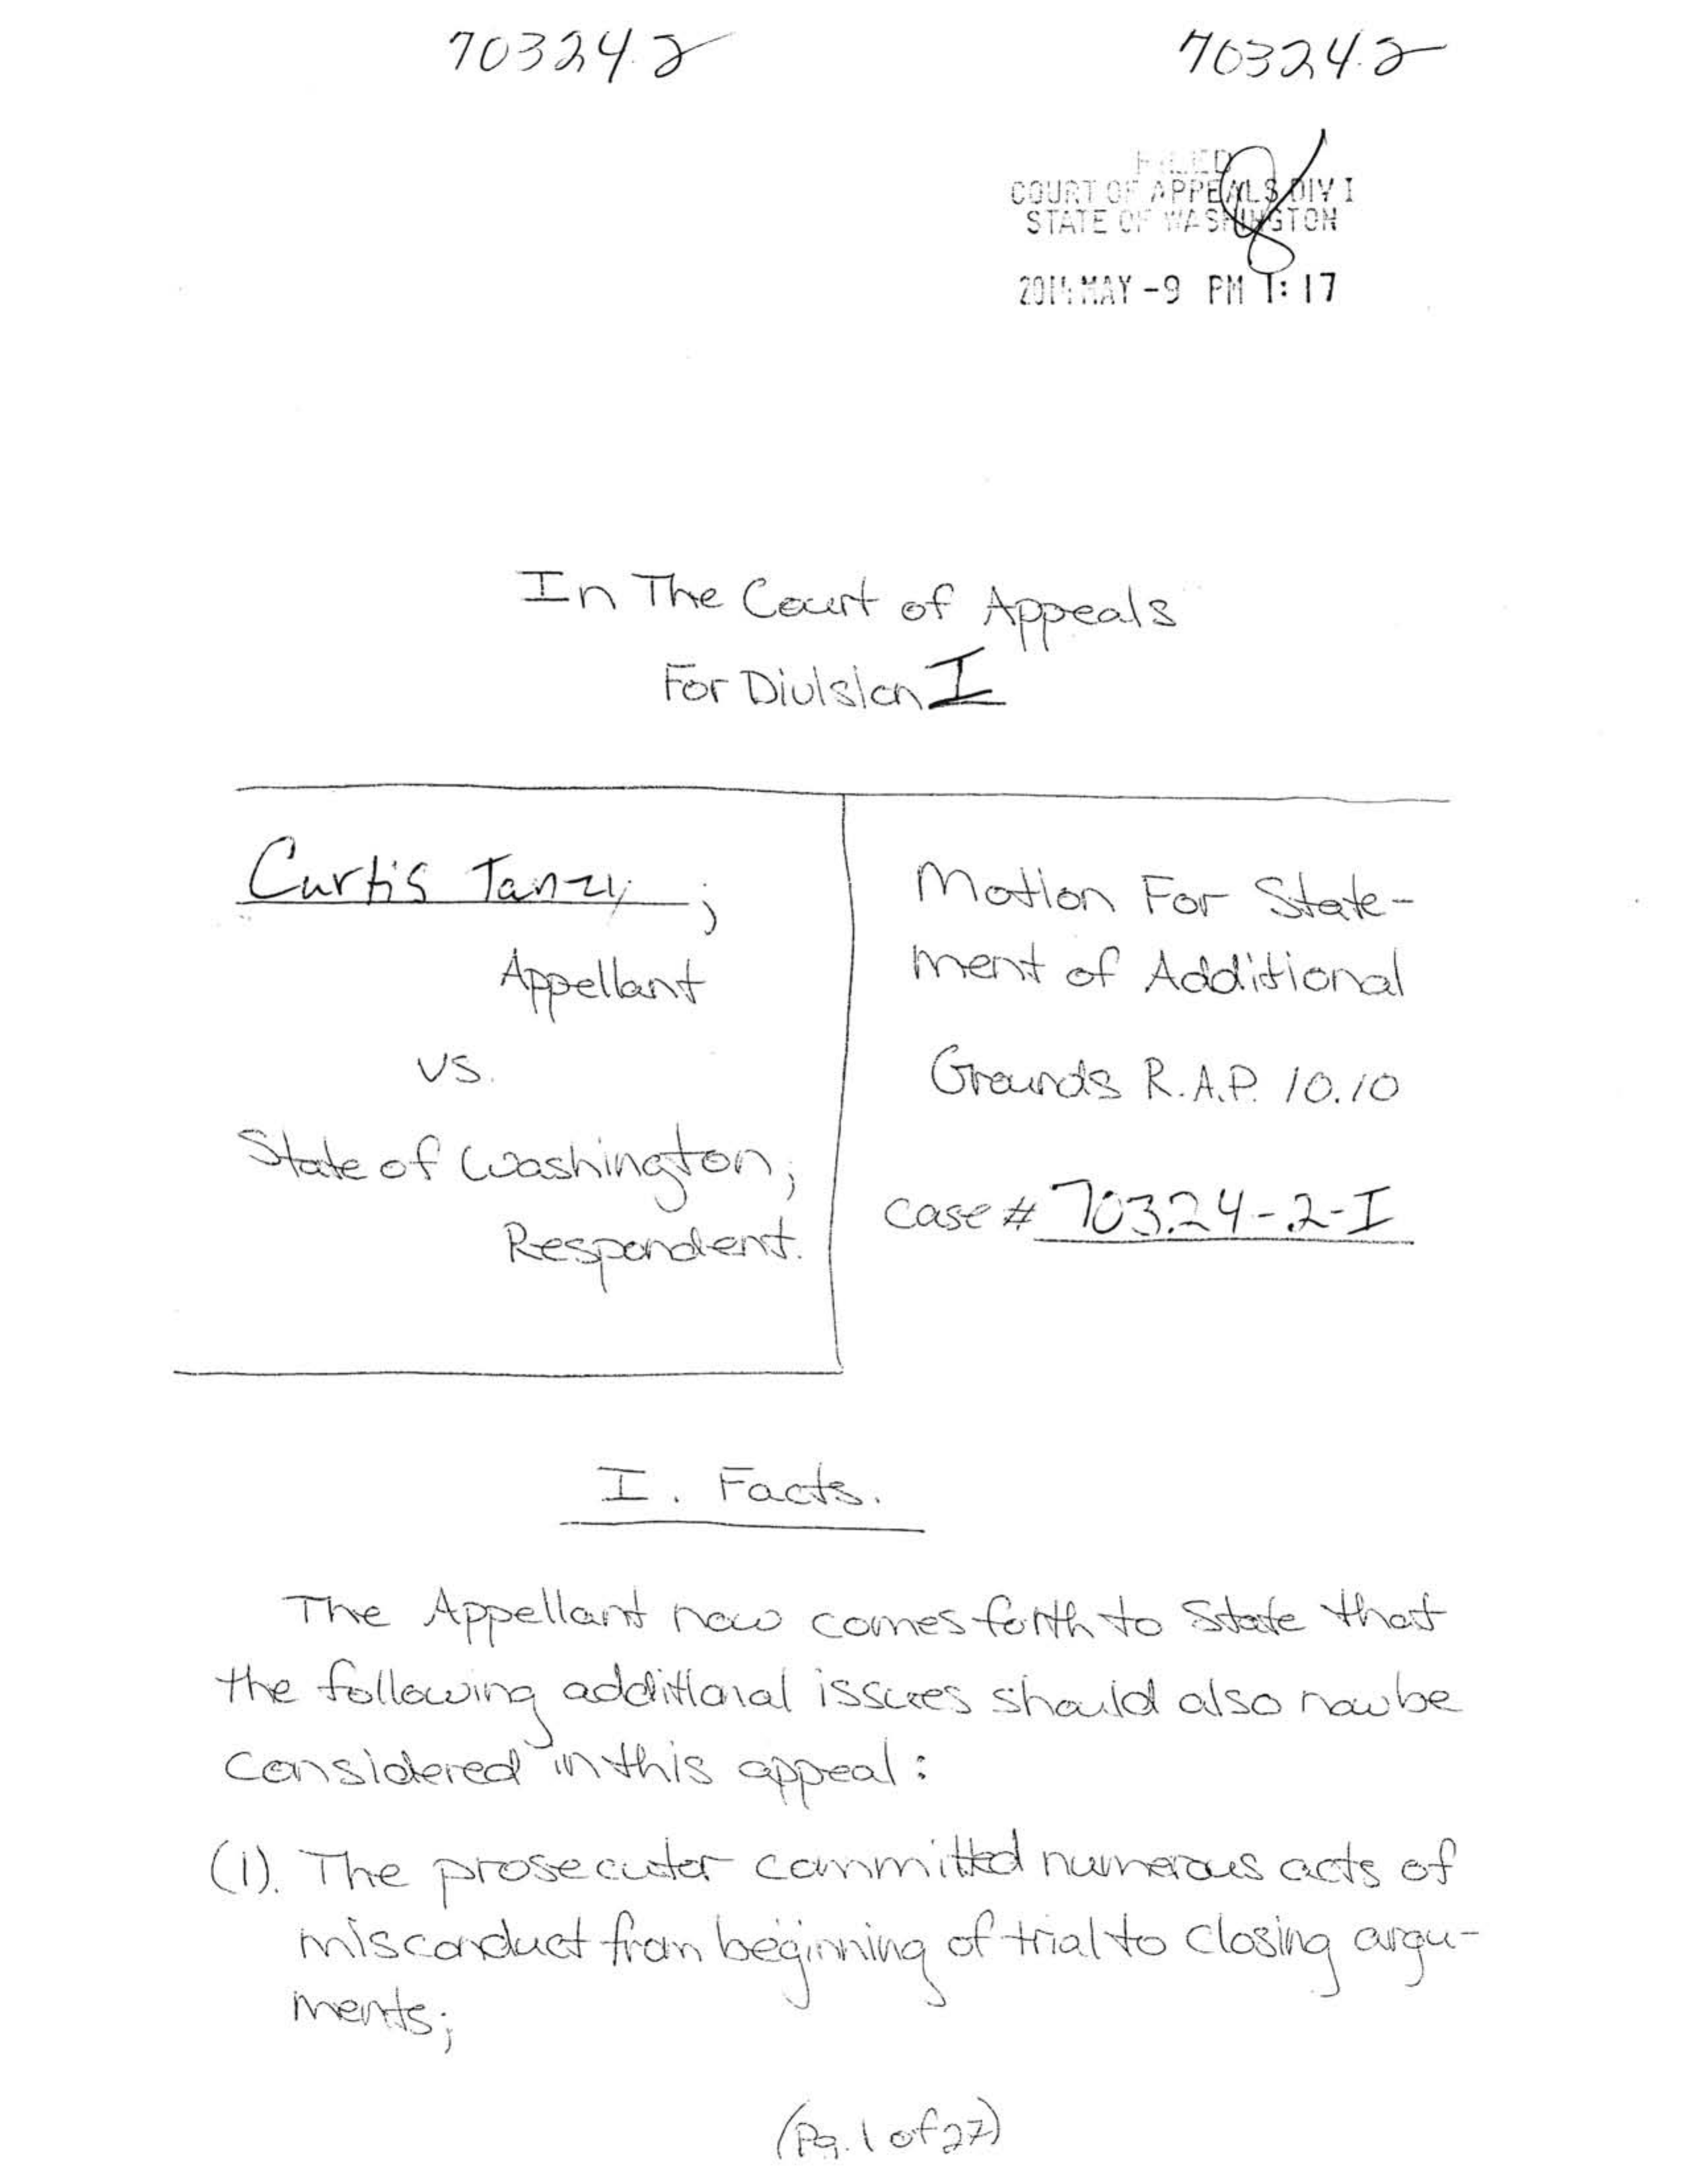 70324.2
70324.2
FILED
COURT OF APPEALS DIV I
STATE OF WASHINGTON
2014 MAY -9 PM 1:17
In The Court of Appeals
For Division I
Curtis Tanzy;
Appellant
vs.
State of Washington;
Respondent.
Motion For State-
ment of Additional
Grounds R.A.P. 10.10
case # 70324-2-I
I. Facts.
The Appellant now comes forth to state that
the following additional issues should also now be
considered in this appeal:
(1). The prosecutor committed numerous acts of
misconduct from beginning of trial to closing argu-
ments;
(Pg. 1 of 27)